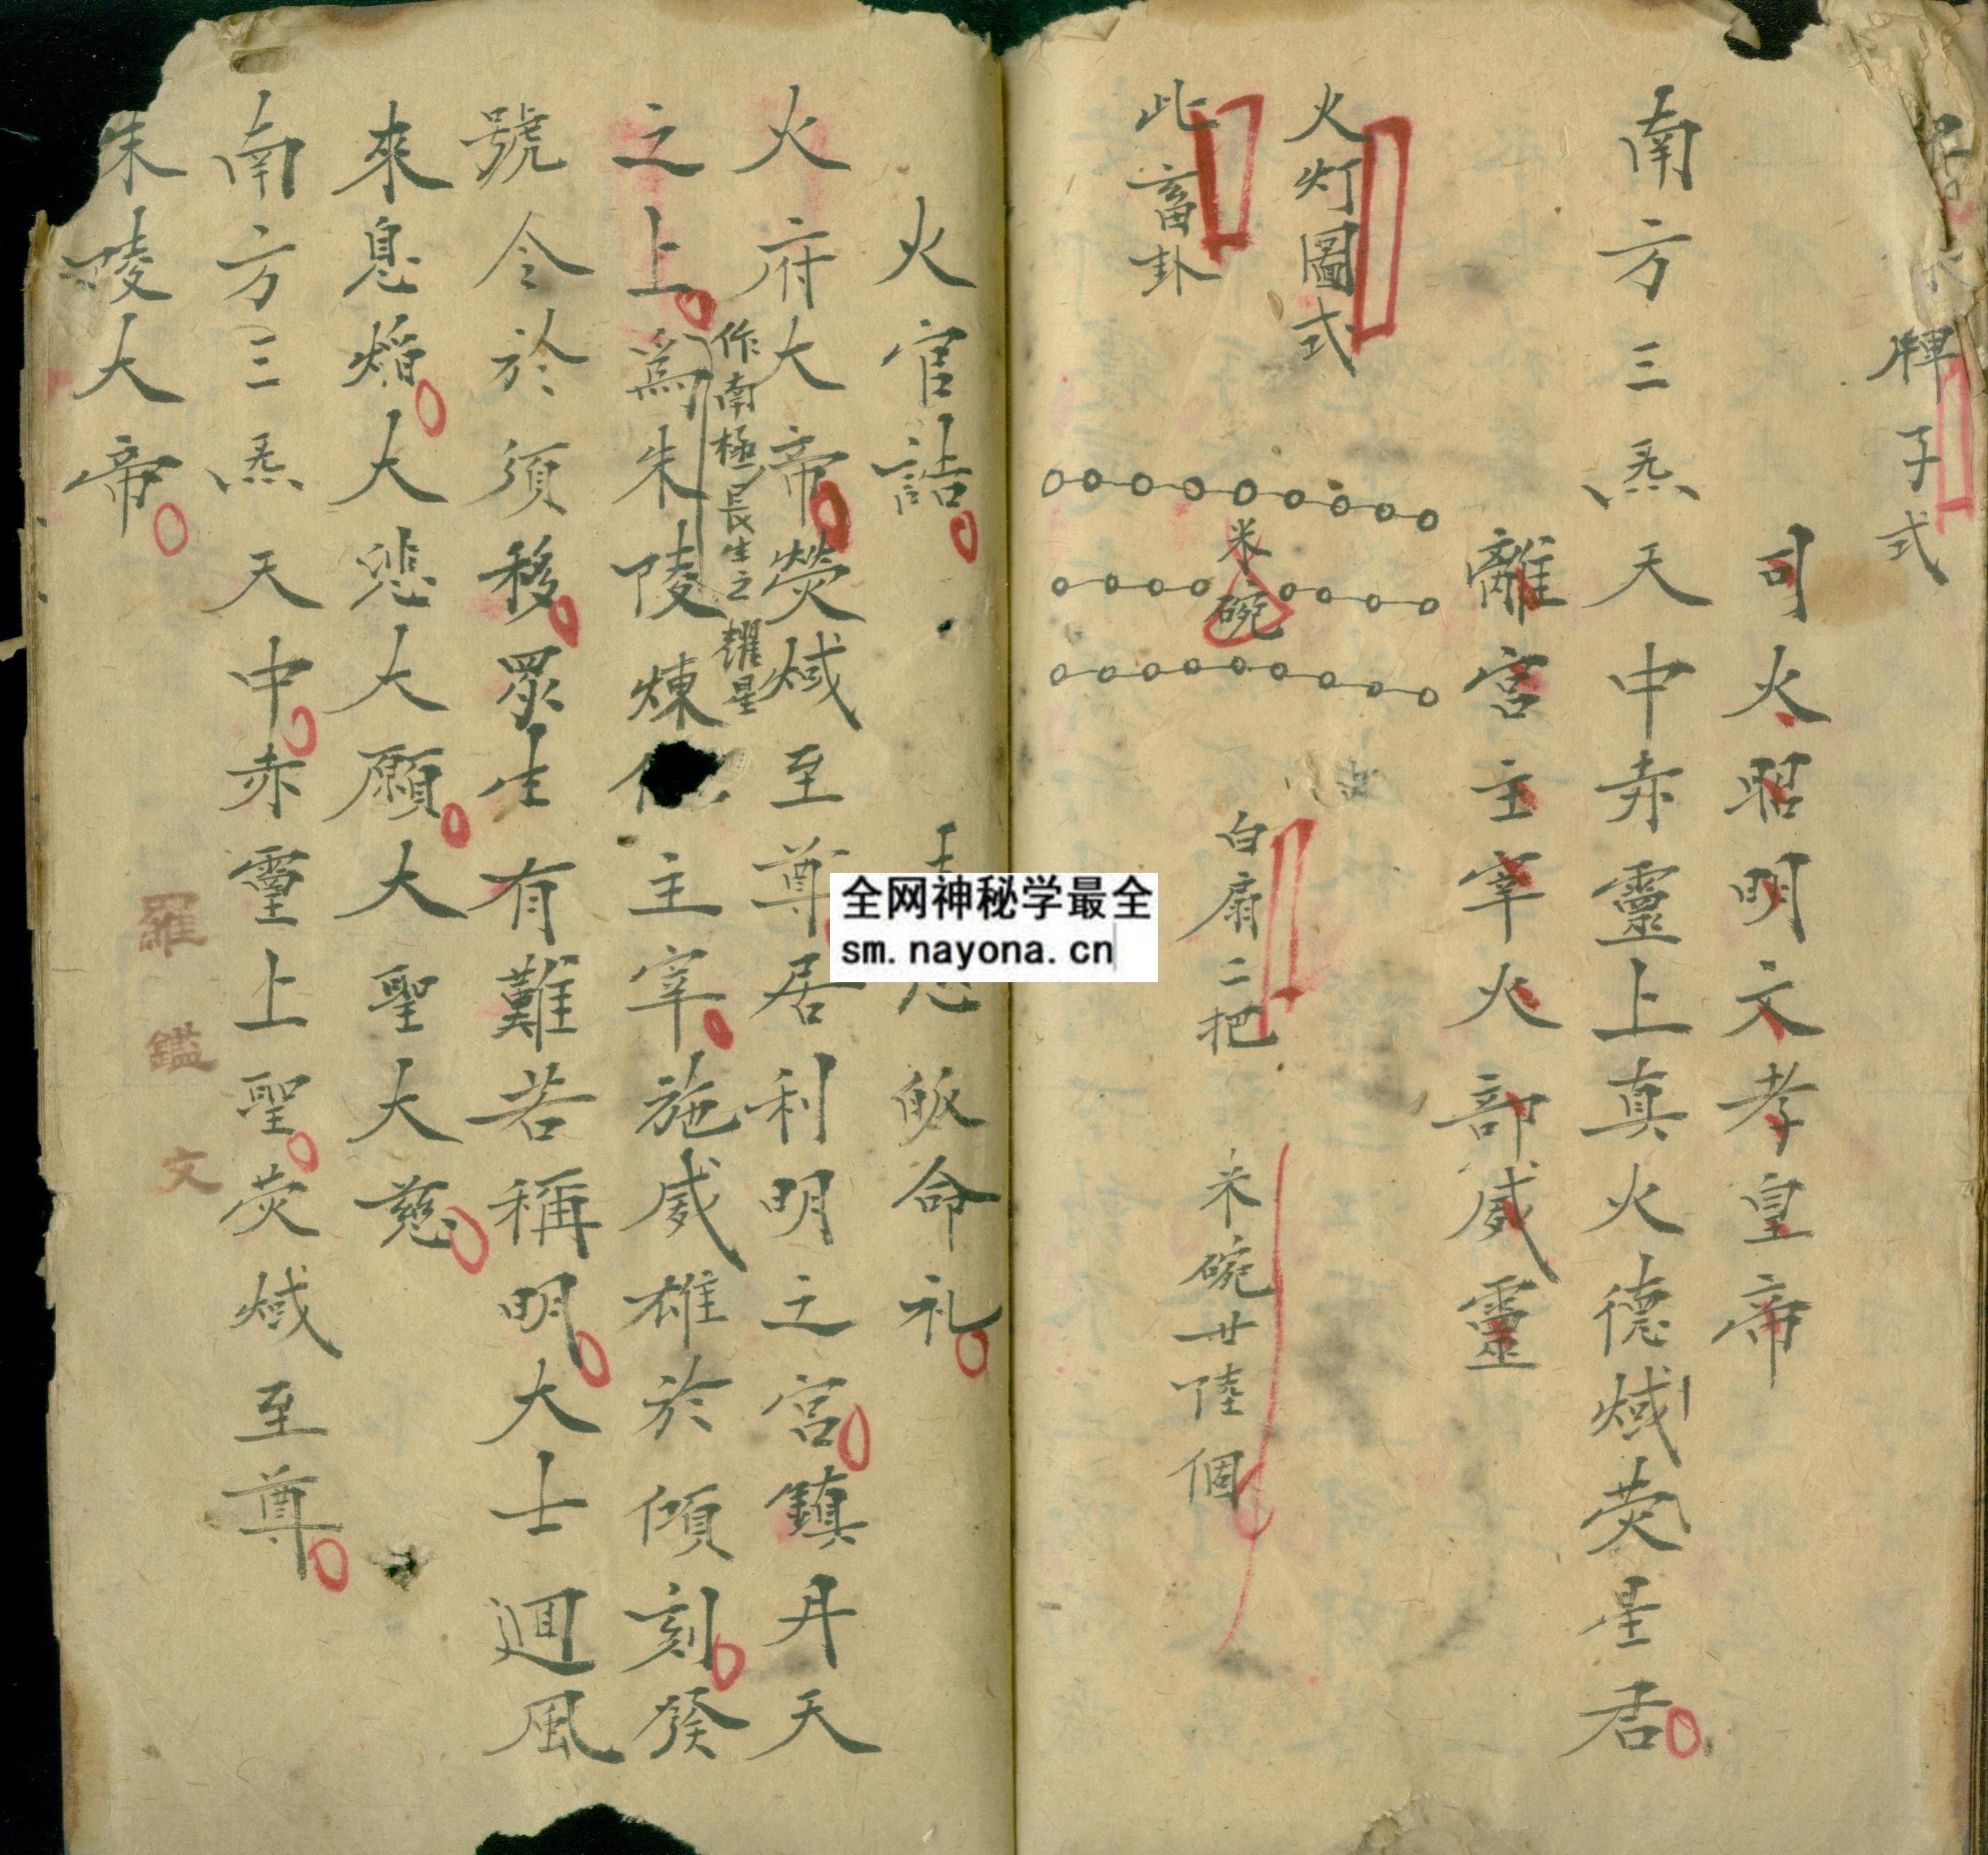 牌子式
司火昭明文孝皇帝
南方三炁天中赤靈上真火德熾荧星君
離宮主宰火部威靈
火灯圖式
此畜卦
米碗
白扇二把
米碗廿陸個
火官誥
皈命礼
火府大帝熒熾至尊居利明之宮鎮丹天
作南極長生之耀星
之上為朱陵煉主宰施威雄於傾刻發
號令於須移眾生有難若稱明大士迴風
來息熖大悲大願大聖大慈
南方三炁天中赤靈上聖荧熾至尊
朱陵大帝
羅鑑文
全网神秘学最全
sm.nayona.cn